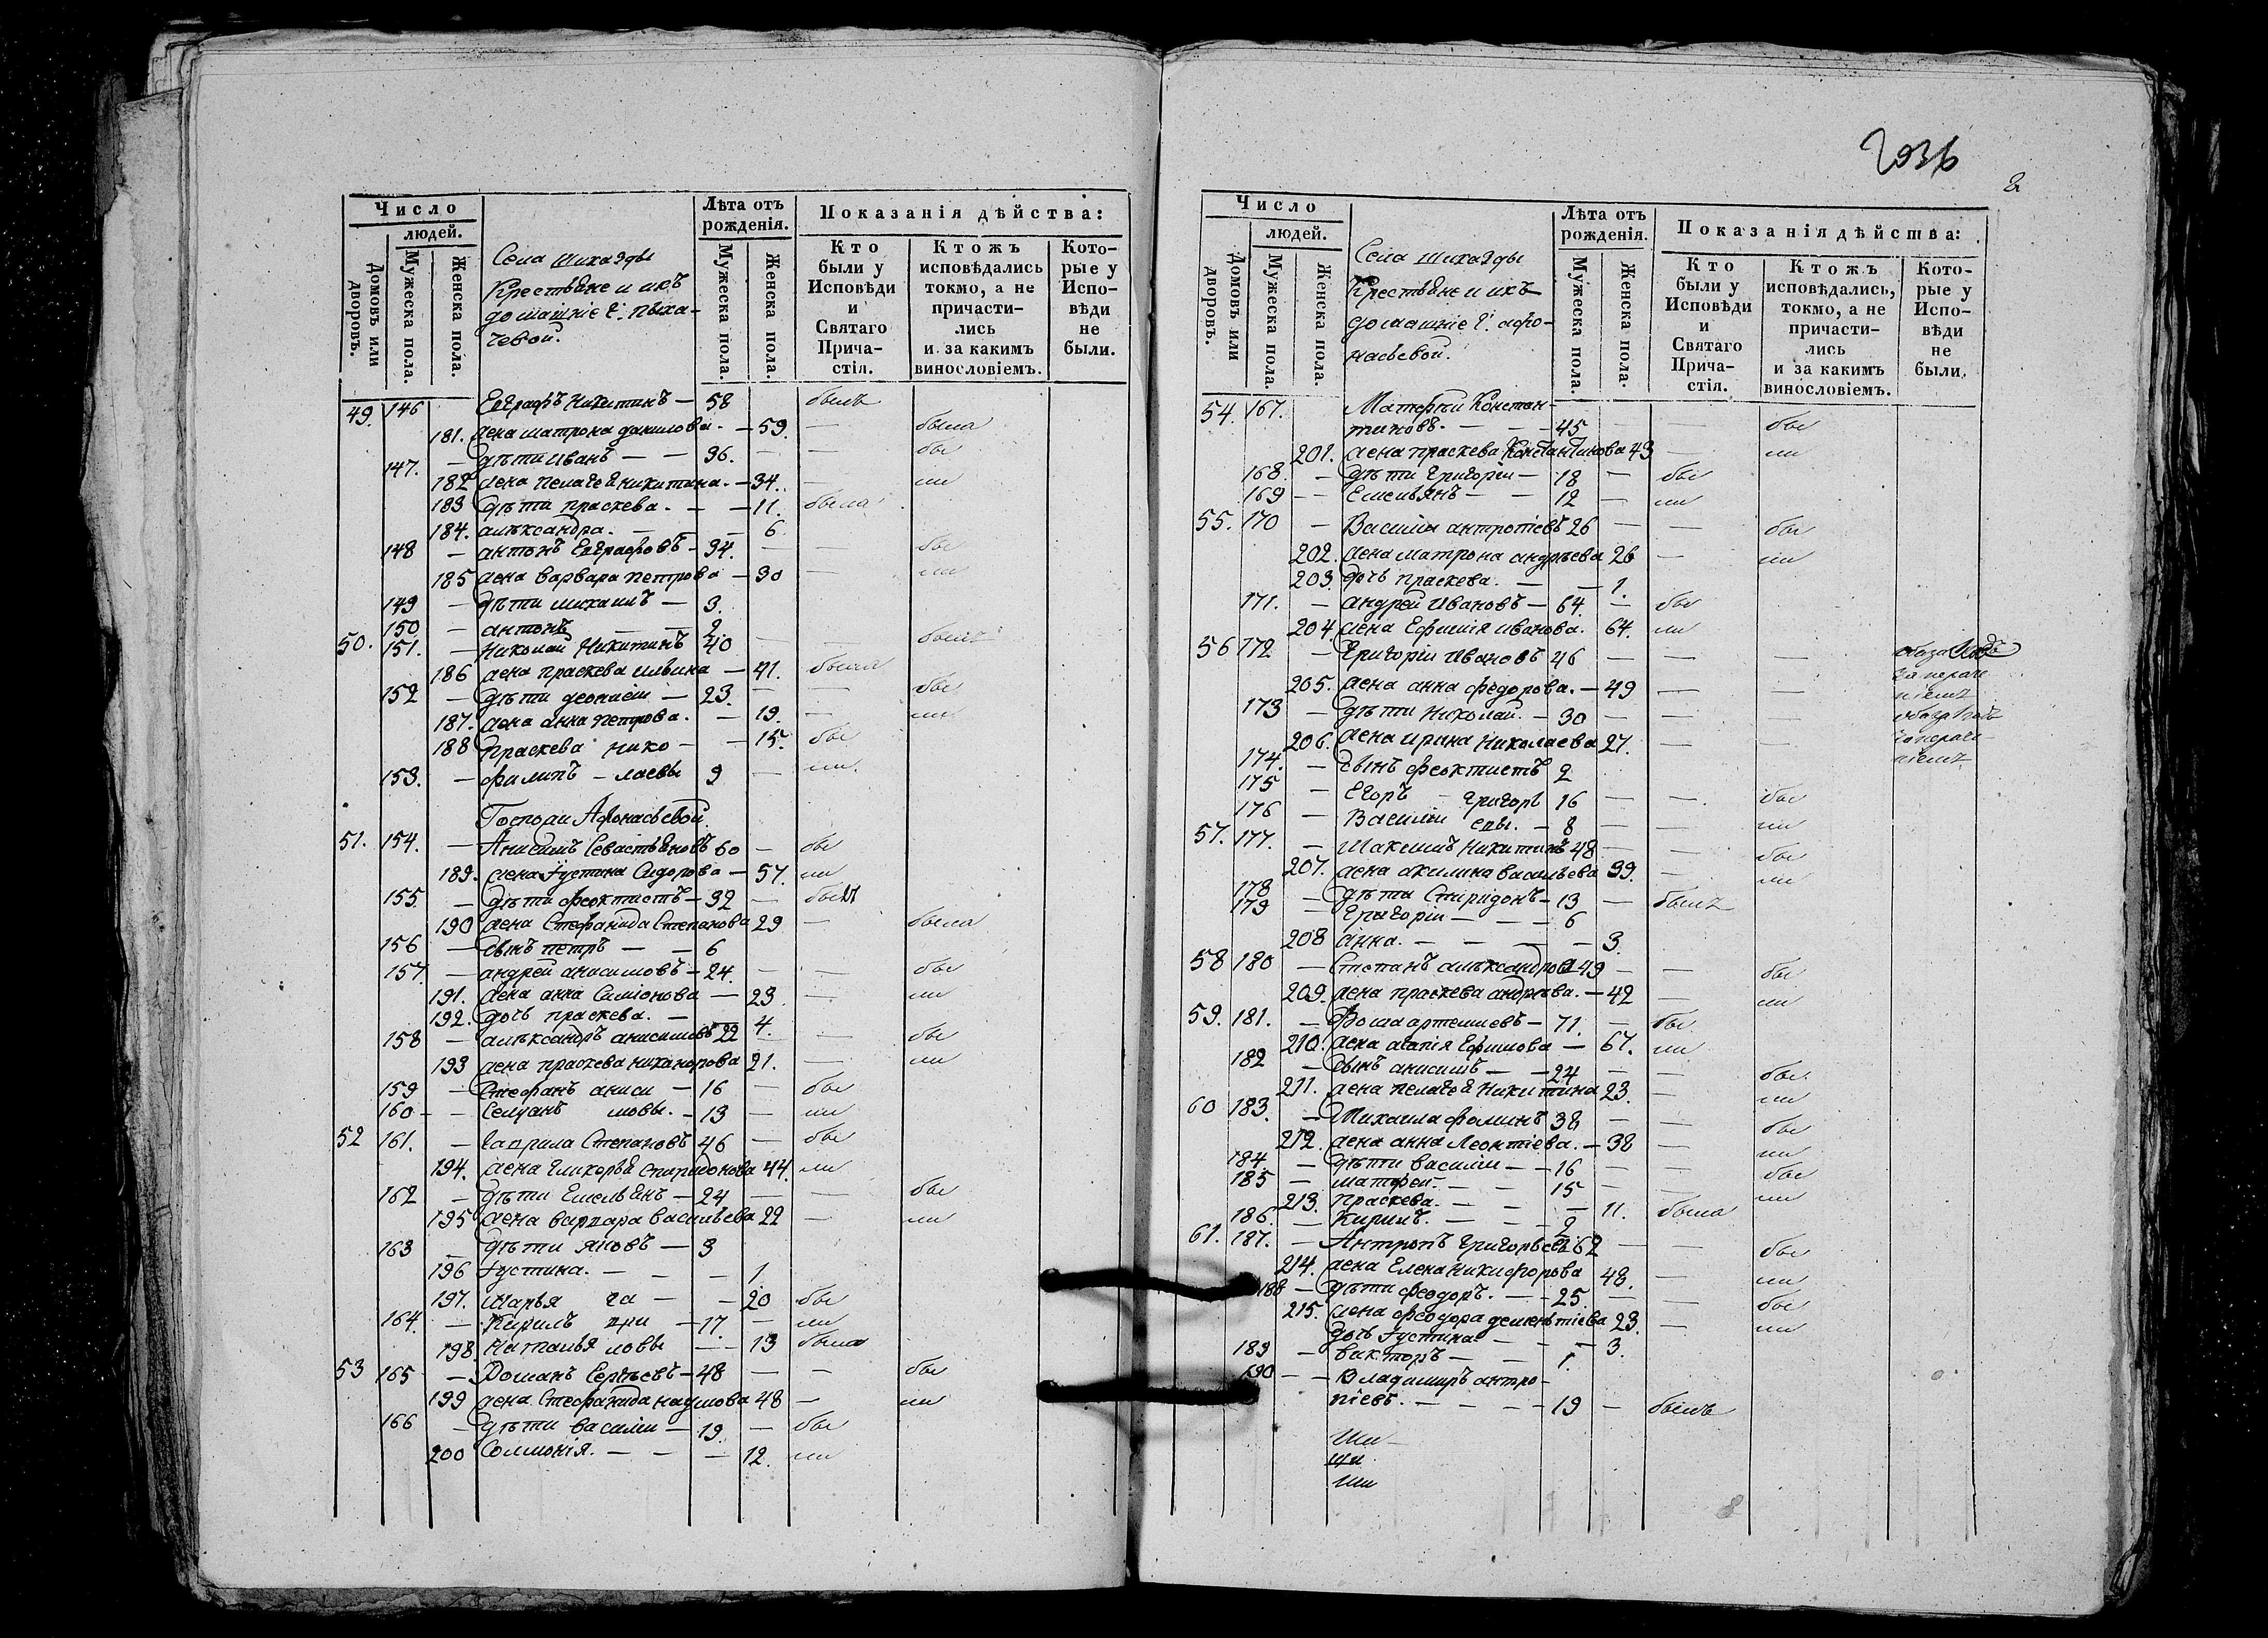 Число
людей.
Домовъ или дворовъ.
Мужеска пола.
Женска пола.
Села Шихазды
Крестьяне и ихъ
домашніе Г. Пыха-
чевой.
Лѣта отъ рожденія.
Мужеска пола.
Женска пола.
Показанія дѣйства:
Кто были у Исповѣди и Святаго Прича-стія.
Ктожъ исповѣдались токмо, а не причасти-лись и за какимъ винословіемъ.
Кото-рые у Испо-вѣди не были.
49. 146 Евграфъ Никитинъ — 58 былъ
181. жена матрона данилова. — 59. — была
147. — дѣти иванъ — — 36. — — бы
182 жена пелагея никитина. — 34. — ли
183 дѣти праскева. — — 11. была
184. алѣксандра. — — 6
148 — антонъ Евграфовъ — 34. — — бы
185 жена варвара петрова — 30 — ли
149 — дѣти михаилъ — 3.
150 — антонъ — — 2
50. 151. — Николай Никитинъ 40 — — былъ
186 жена праскева ильина — 41. была
152 — дѣти деонисіи — 23. — — бы
187. жена анна петрова. — 19. — ли
188 праскева нико — — 15. бы
153. — филипъ — лаевы 9 — ли.
Госпожи Афонасьевой.
51. 154. — Анисимъ Севастьяновъ 60 — бы
189. жена Густина Сидорова — 57. ли
155 — дѣти феоктистъ — 32 — былъ
190 жена Стефанида Степанова 29 — была
156 — сынъ петръ — — 6
157. — андрей анисимовъ — 24. — — бы
191. жена анна Симіонова — 23 — ли
192. дочь праскева. — — 4.
158 — алѣксандръ анисимовъ 22 — — бы
193 жена праскева никанорова 21. — ли
159 — Стефанъ аниси — 16 — бы
160 — — Селуанъ мовы. — 13 — ли
52 161. — Гаврила Степановъ 46 — бы
194. жена гликорья спиридонова 44. ли
162 — дѣти Емельянъ — 24 — — бы
195 жена варвара васильева 22 — ли
163 — дѣти яковъ — 3
196 Густина. — — — 1
197. Марья га — — 20 бы
164. — Кирилъ ври — 17. — ли
198. Наталья ловы — — 13 была
53 165 — Романъ Сергѣевъ — 48 — — бы
199 жена Стефанида наумова 48 — ли
166 — дѣти василіи — 19. — бы
200 Соломонія. — — — 12. ли
2036
Число
людей.
Домовъ или дворовъ.
Мужеска пола.
Женска пола.
Села Шихазды
Крестьяне и ихъ
домашніе Г. афо-
насьевой.
Лѣта отъ рожденія.
Мужеска пола.
Женска пола.
Показанія дѣйства:
Кто были у Исповѣди и Святаго Прича-стія.
Ктожъ исповѣдались, токмо, а не причасти-лись и за какимъ винословіемъ.
Кото-рые у Испо-вѣди не были.
54. 167. Матфей Констан-
тиновъ. — — — 45 — — бы
201. жена праскева Константинова 43 — ли
168. — дѣти григоріи — 18 — бы
169 — — Емельянъ — — 12 — ли
55. 170 — Василіи антропіевъ 26 — — бы
202. жена матрона андрѣева 26 — ли
203. дочь праскева. — — 1.
171. — андрей ивановъ — 64. — бы
204. жена Ефимія иванова. 64. ли
56 172 — Григоріи ивановъ 46 — — —
205. жена анна федорова. — 49 — —
173 — дѣти Николай. — 30 — — —
206. жена ирина николаева 27. — —
174. — сынъ феоктистъ 2
175 — Егоръ григорь 16 — — бы
176 — Василіи евы. — 8 — — ли
57. 177. — Максимъ Никитинъ 48 — — бы
207. жена акилина васильева 39. — ли
178 — дѣти Спиридонъ — 13 — былъ
179 — григоріи — — — 6
208 анна. — — — — 3.
58 180 — Степанъ алѣксандровъ 49 — — бы
209. жена праскева андрѣева. — 42 — ли
59. 181. — Фома артемиевъ — 71. — бы
210. жена агапія Ефимова — 67. ли
182 — сынъ анисимъ — — 24 — — бы
211. жена пелагея никитина 23. — ли
60 183. — Михаила фоминъ 38 — — бы
212. жена анна Леонтіева. — 38 — ли
184 — дѣти василіи — — 16 — — бы
185 — матфеи. — — 15 — — ли
213. праскева. — — — 11. была
186. — Кирилъ. — — — 2.
61. 187. — Антропъ григорьевъ 62 — — бы
214. жена Елена никифорова 48. — ли
188 — дѣти феодоръ. — — 25 — — бы
215. жена феодора дементіева 23. — ли
дочь Густина — — — 3.
189 — викторъ — — 1.
190 — — Владимиръ антро-
піевъ. — — — — 19 — былъ